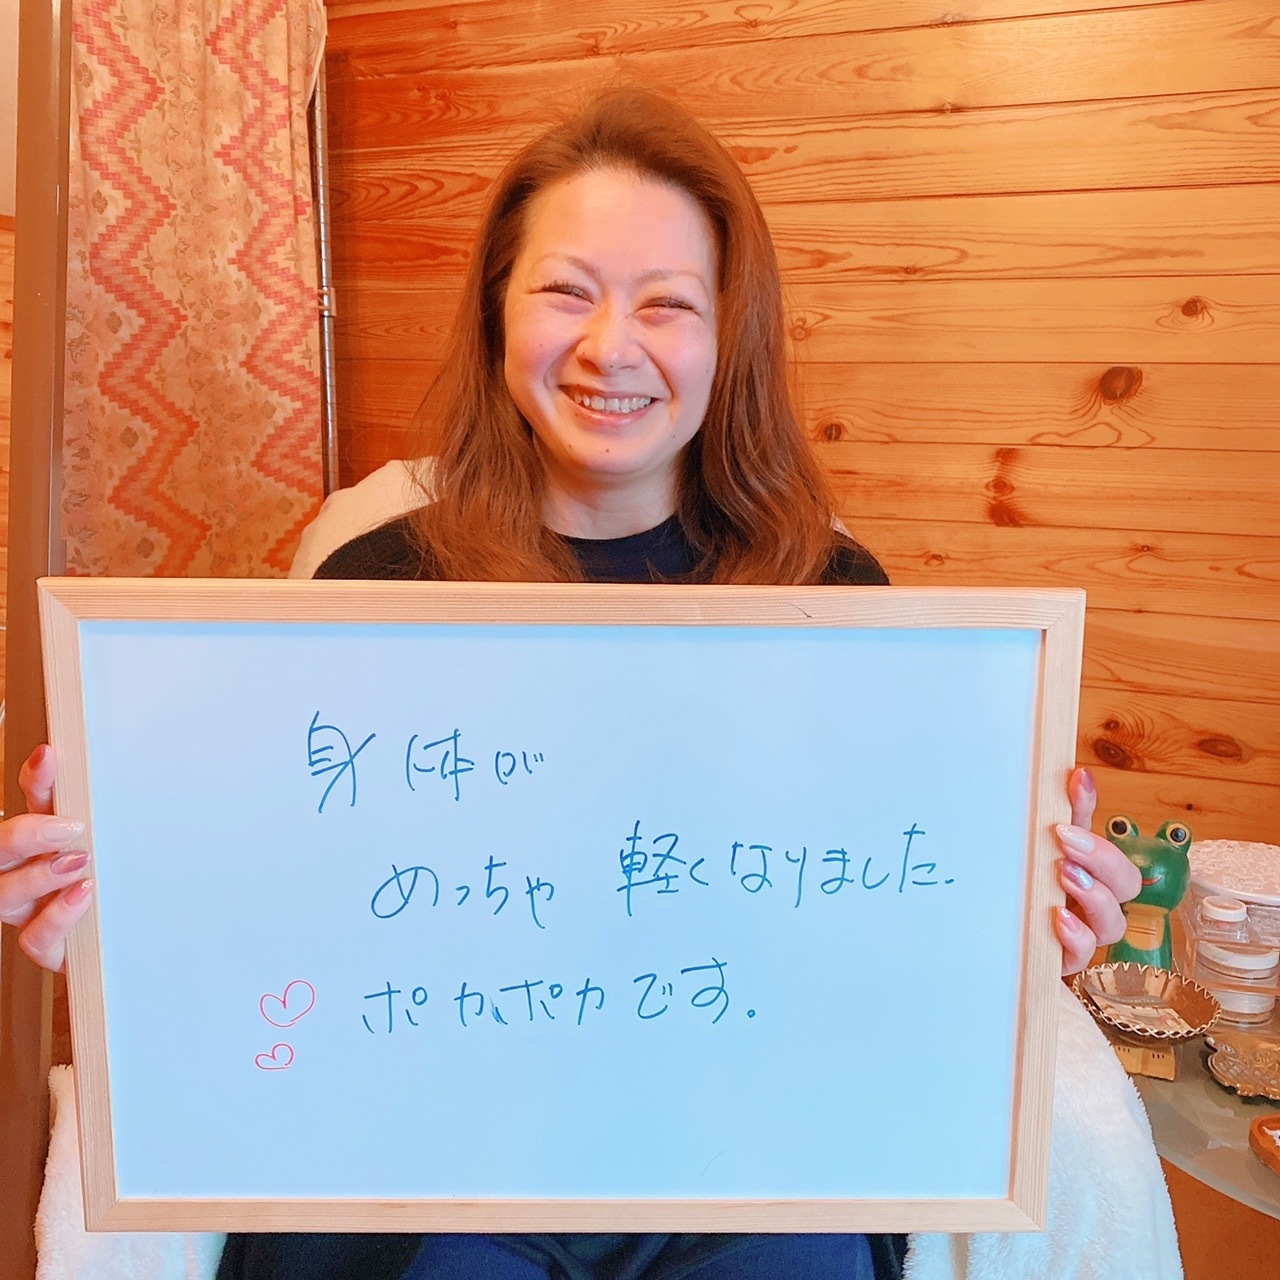 身体が
めっちゃ 軽くなりました.
ポカポカです。